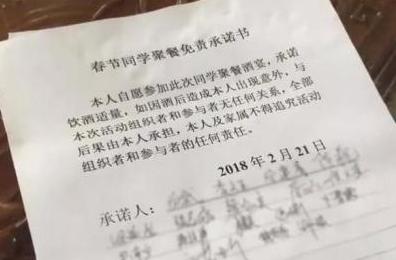 春节同学聚餐免责承诺书
本人自愿参加此次同学聚餐酒宴，承诺
饮酒适量，如因酒后造成本人出现意外，与
本次活动组织者和参与者无任何关系，全部
后果由本人承担，本人及家属不得追究活动
组织者和参与者的任何责任。
2018年2月21日
承诺人：